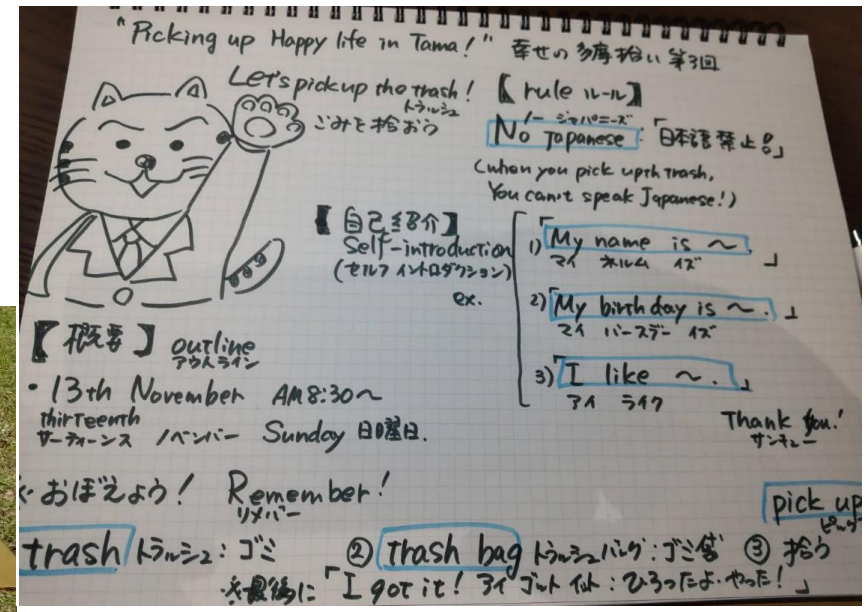 "Picking up Happy life in Tama!" 幸せの多摩拾い 第3回
Let's pick up the trash!
トラッシュ
ごみを拾おう
【rule ルール】
ノー ジャパニーズ
No Japanese:「日本語禁止!」
(when you pick up th trash,
You can't speak Japanese!)
【自己紹介】
Self-introduction
(セルフ イントロダクション)
ex.
1)「My name is ~.」
マイ ネルム イズ
2)「My birthday is ~.」
マイ バースデー イズ
3)「I like ~.」
アイ ライク
Thank you!
サンキュー
【概要】outline
アウトライン
・13th November AM 8:30~
thirteenth
サーティーンス ノベンバー Sunday 日曜日.
おぼえよう! Remember!
リメバー
trash トラッシュ:ゴミ ② trash bag トラッシュバッグ:ゴミ袋 ③ 拾う
pick up
※最後に「I got it! アイ ゴット イット:ひろったよ・やった!」